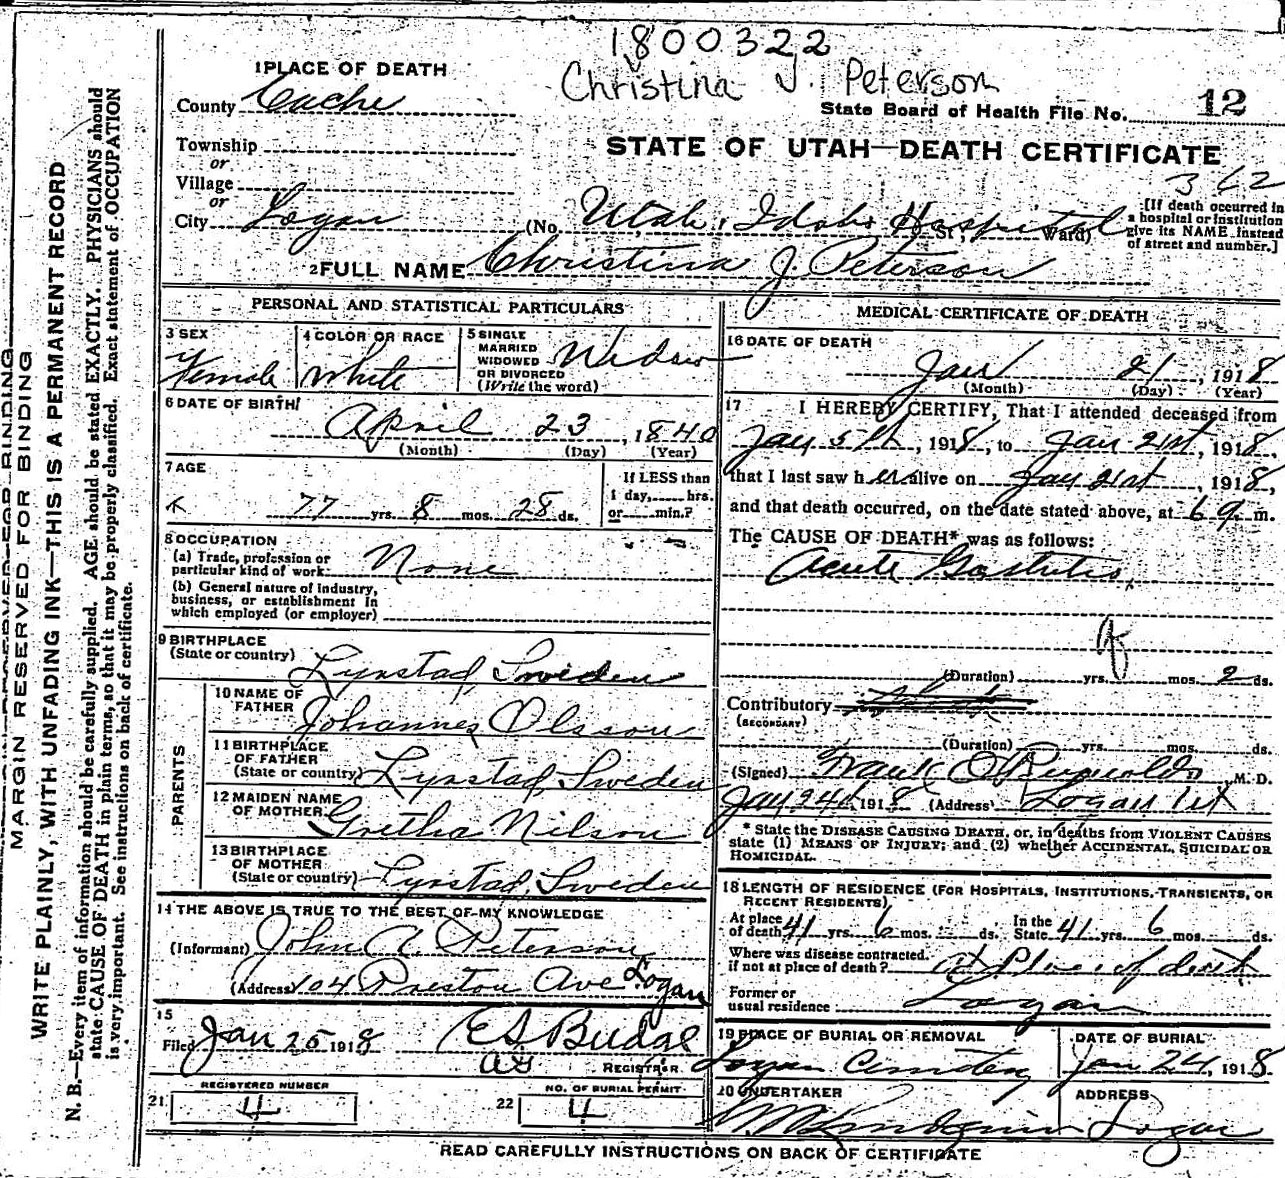 1800322
Christina J. Peterson
1 PLACE OF DEATH
County Cache
State Board of Health File No. 12
Township
or
Village
or
City Logan
STATE OF UTAH—DEATH CERTIFICATE
362
(No. Utah, Idaho Hospital St.; Ward)
[If death occurred in
a hospital or institution
give its NAME instead
of street and number.]
2 FULL NAME Christina J. Peterson
PERSONAL AND STATISTICAL PARTICULARS
3 SEX
Female
4 COLOR OR RACE
White
5 SINGLE
MARRIED
WIDOWED
OR DIVORCED
(Write the word)
Widow
6 DATE OF BIRTH
April 23, 1840
(Month) (Day) (Year)
7 AGE
77 yrs. 8 mos. 28 ds.
If LESS than
1 day, hrs.
or min.?
8 OCCUPATION
(a) Trade, profession or
particular kind of work None
(b) General nature of industry,
business, or establishment in
which employed (or employer)
9 BIRTHPLACE
(State or country)
Lynstad, Sweden
PARENTS
10 NAME OF
FATHER
Johannes Olsson
11 BIRTHPLACE
OF FATHER
(State or country) Lynstad, Sweden
12 MAIDEN NAME
OF MOTHER
Gretha Nilson
13 BIRTHPLACE
OF MOTHER
(State or country) Lynstad, Sweden
14 THE ABOVE IS TRUE TO THE BEST OF MY KNOWLEDGE
(Informant) John A. Peterson
(Address 104 Preston Ave Logan
15
Filed Jan 25 1918 E S Budge
REGISTRAR
REGISTERED NUMBER
21 4
NO. OF BURIAL PERMIT
22 4
MEDICAL CERTIFICATE OF DEATH
16 DATE OF DEATH
Jan 21, 1918
(Month) (Day) (Year)
17 I HEREBY CERTIFY, That I attended deceased from
Jan 5th, 1918, to Jan 21st, 1918,
that I last saw her alive on Jan 21st, 1918,
and that death occurred, on the date stated above, at 6 a. m.
The CAUSE OF DEATH* was as follows:
Acute Gastritis
(Duration) yrs. mos. 2 ds.
Contributory
(SECONDARY)
(Duration) yrs. mos. ds.
(Signed) Frank O Reynolds, M. D.
Jan 24 1918 (Address) Logan Ut
* State the DISEASE CAUSING DEATH, or, in deaths from VIOLENT CAUSES
state (1) MEANS OF INJURY; and (2) whether ACCIDENTAL, SUICIDAL OR
HOMICIDAL.
18 LENGTH OF RESIDENCE (FOR HOSPITALS, INSTITUTIONS, TRANSIENTS, OR
RECENT RESIDENTS).
At place
of death 41 yrs. 6 mos. ds. In the
State 41 yrs. 6 mos. ds.
Where was disease contracted,
if not at place of death? at Place of death
Former or
usual residence Logan
19 PLACE OF BURIAL OR REMOVAL
Logan Cemetery
DATE OF BURIAL
Jan 24, 1918
20 UNDERTAKER
ADDRESS
Logan
READ CAREFULLY INSTRUCTIONS ON BACK OF CERTIFICATE
MARGIN RESERVED FOR BINDING
MARGIN RESERVED FOR BINDING
WRITE PLAINLY, WITH UNFADING INK—THIS IS A PERMANENT RECORD
N. B.—Every item of information should be carefully supplied. AGE should be stated EXACTLY. PHYSICIANS should
state CAUSE OF DEATH in plain terms, so that it may be properly classified. Exact statement of OCCUPATION
is very important. See instructions on back of certificate.